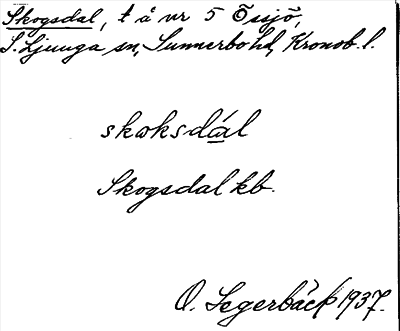 Skogsdal, t å nr 5 Össjö,
S. Ljunga sn, Sunnerbo hd, Kronob. l.
skoksdál
Skogsdal kb.
O. Segerbäck 1937.